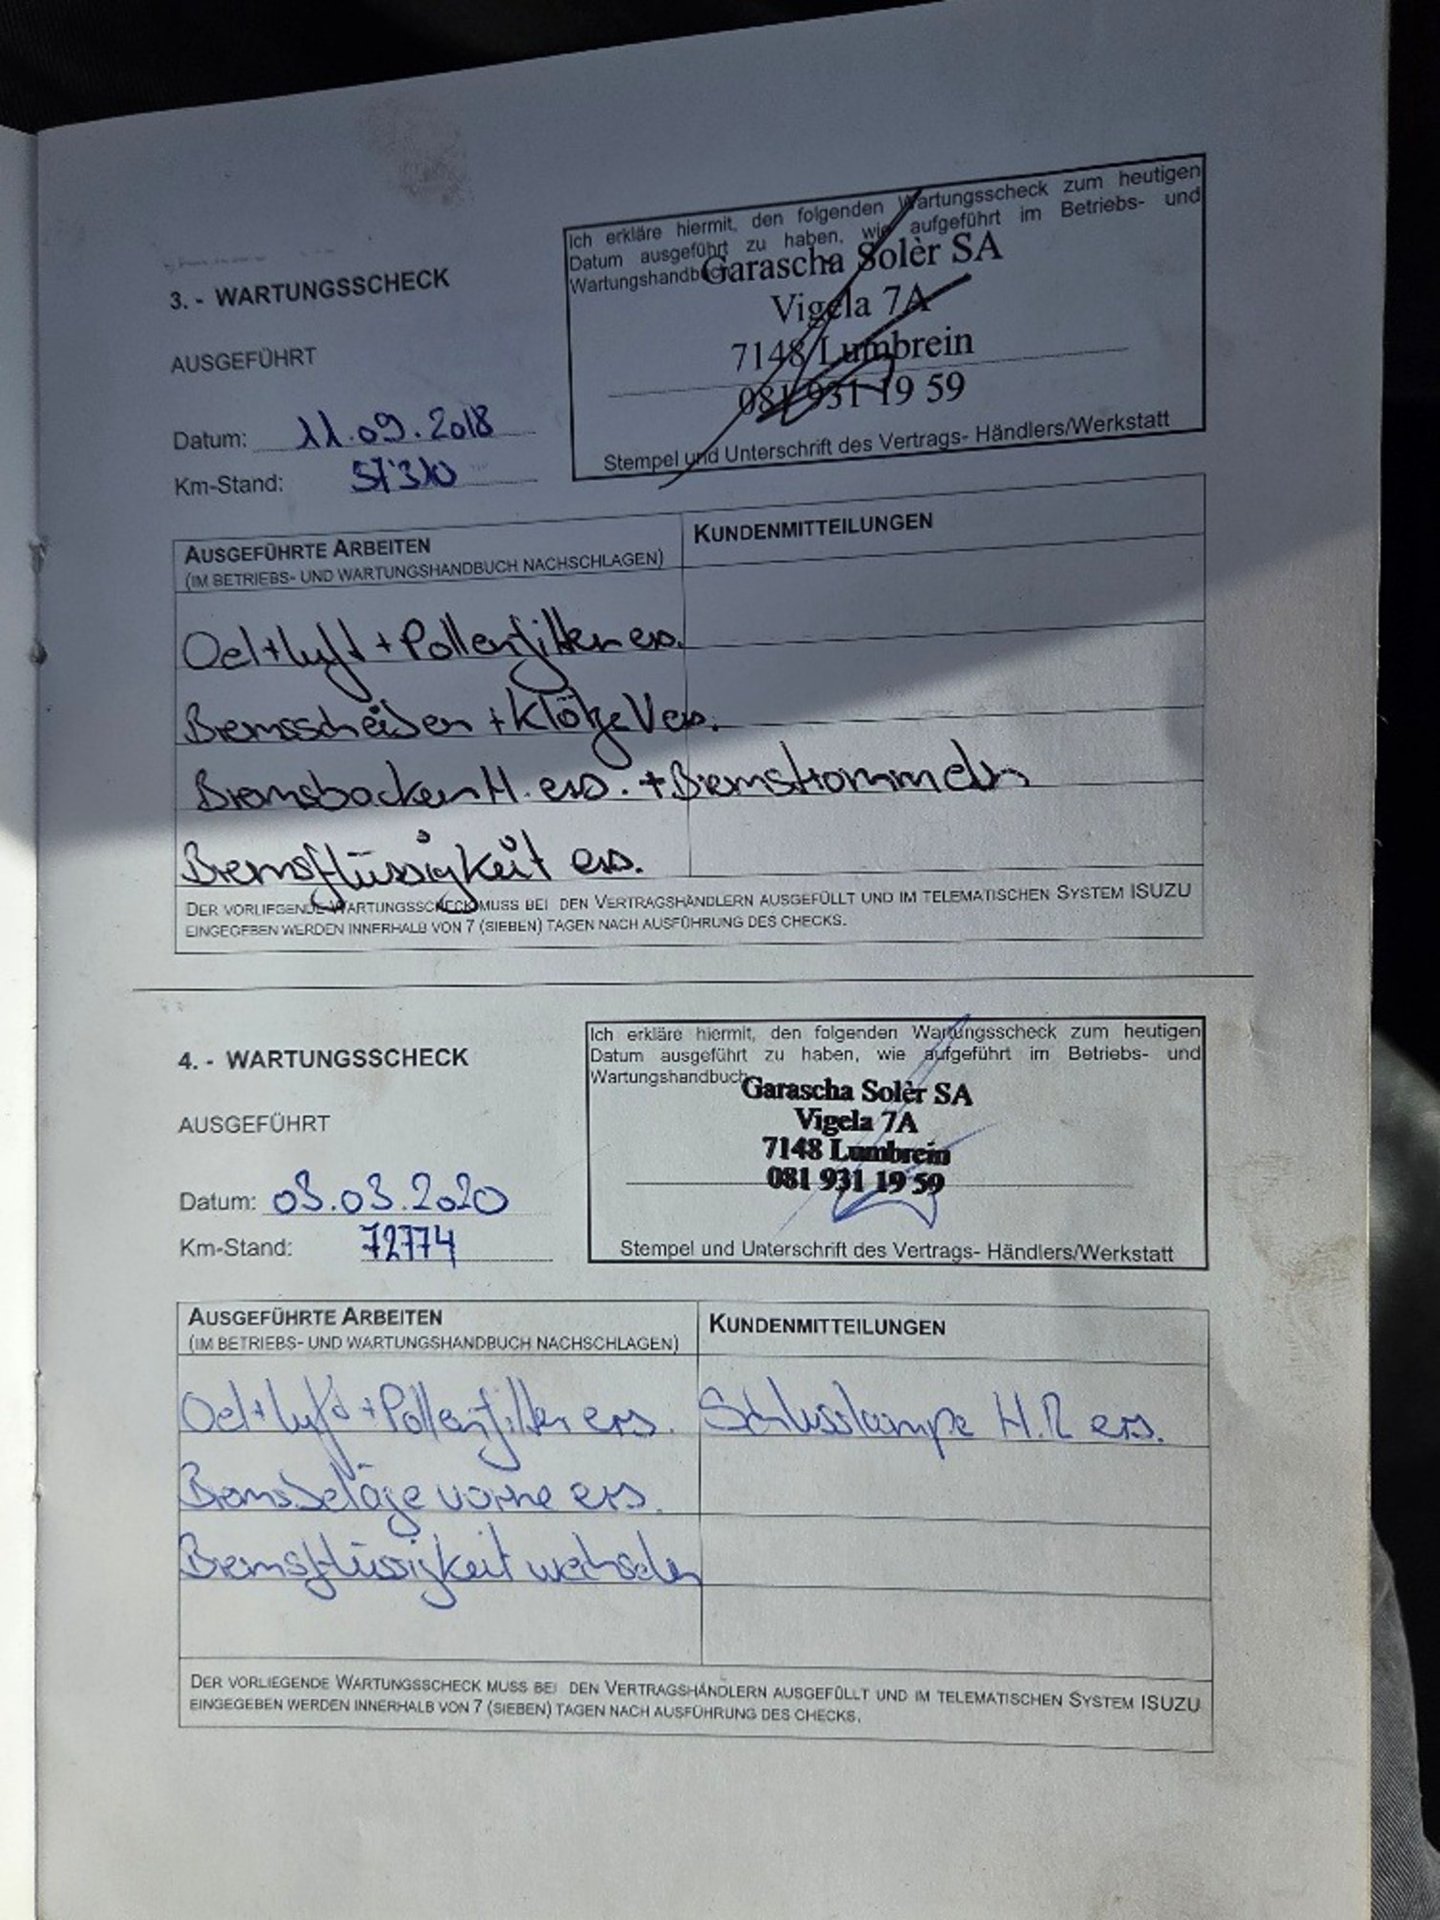 Ich erkläre hiermit, den folgenden Wartungsscheck zum heutigen
Datum ausgeführt zu haben, wie aufgeführt im Betriebs- und
Wartungshandbuch
Garascha Solèr SA
Vigela 7A
7148 Lumbrein
081 931 19 59
Stempel und Unterschrift des Vertrags- Händlers/Werkstatt
3. - WARTUNGSSCHECK
AUSGEFÜHRT
Datum: 11.09.2018
Km-Stand: 57310
AUSGEFÜHRTE ARBEITEN
(IM BETRIEBS- UND WARTUNGSHANDBUCH NACHSCHLAGEN)
KUNDENMITTEILUNGEN
Oel+Luft+Pollenfilter ers.
Bremsscheiben + Klötze V ers.
Bremsbacken H. ers. + Bremstrommeln
Bremsflüssigkeit ers.
DER VORLIEGENDE WARTUNGSSCHECK MUSS BEI DEN VERTRAGSHÄNDLERN AUSGEFÜLLT UND IM TELEMATISCHEN SYSTEM ISUZU
EINGEGEBEN WERDEN INNERHALB VON 7 (SIEBEN) TAGEN NACH AUSFÜHRUNG DES CHECKS.
Ich erkläre hiermit, den folgenden Wartungsscheck zum heutigen
Datum ausgeführt zu haben, wie aufgeführt im Betriebs- und
Wartungshandbuch
Garascha Solèr SA
Vigela 7A
7148 Lumbrein
081 931 19 59
Stempel und Unterschrift des Vertrags- Händlers/Werkstatt
4. - WARTUNGSSCHECK
AUSGEFÜHRT
Datum: 03.03.2020
Km-Stand: 72774
AUSGEFÜHRTE ARBEITEN
(IM BETRIEBS- UND WARTUNGSHANDBUCH NACHSCHLAGEN)
KUNDENMITTEILUNGEN
Oel+Luft+Pollenfilter ers.
Schlusslampe H.R ers.
Bremsbeläge vorne ers.
Bremsflüssigkeit wechseln
DER VORLIEGENDE WARTUNGSSCHECK MUSS BEI DEN VERTRAGSHÄNDLERN AUSGEFÜLLT UND IM TELEMATISCHEN SYSTEM ISUZU
EINGEGEBEN WERDEN INNERHALB VON 7 (SIEBEN) TAGEN NACH AUSFÜHRUNG DES CHECKS.